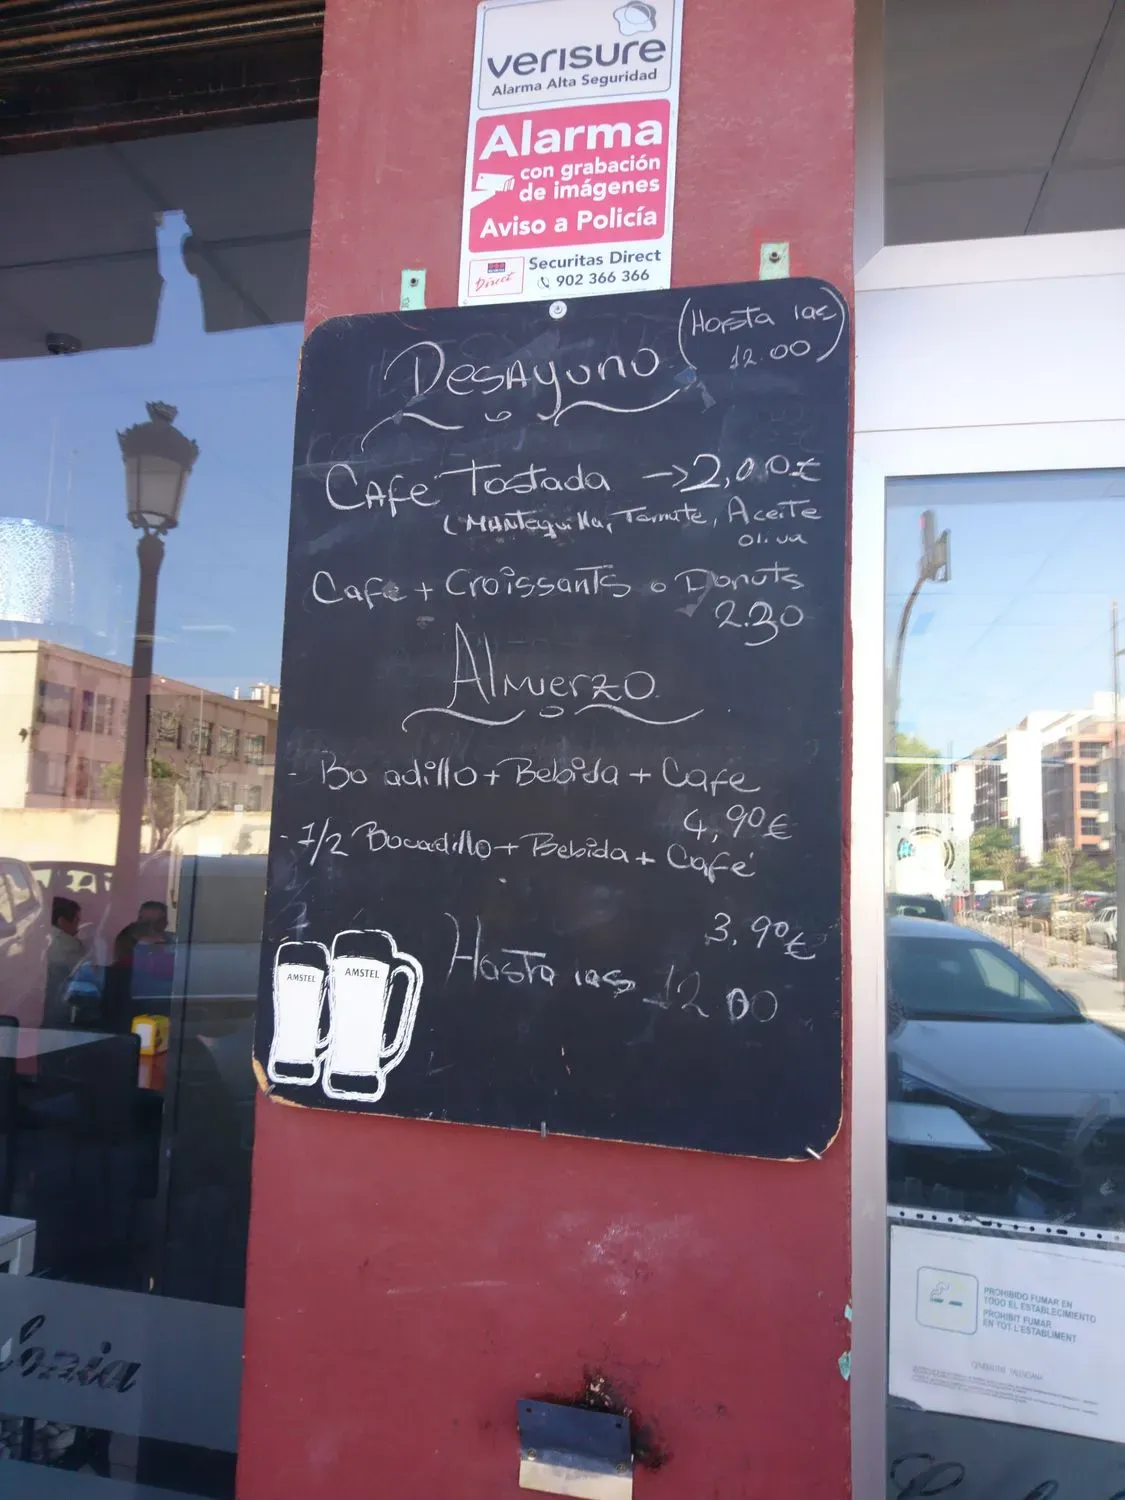 verisure
Alarma Alta Seguridad
Alarma
con grabación
de imágenes
Aviso a Policía
Securitas Direct
Direct
902 366 366
Desayuno
(Hasta las
12.00)
Cafe Tostada → 2,00€
(Mantequilla, Tomate, Aceite
oliva
Cafe + Croissants o Donuts
2.30
Almuerzo
- Bo adillo + Bebida + Cafe
4,90€
- 1/2 Bocadillo + Bebida + Café
3,90€
Hasta las 12 00
AMSTEL
AMSTEL
PROHIBIDO FUMAR EN
TODO EL ESTABLECIMIENTO
PROHIBIT FUMAR
EN TOT L'ESTABLIMENT
GENERALITAT VALENCIANA